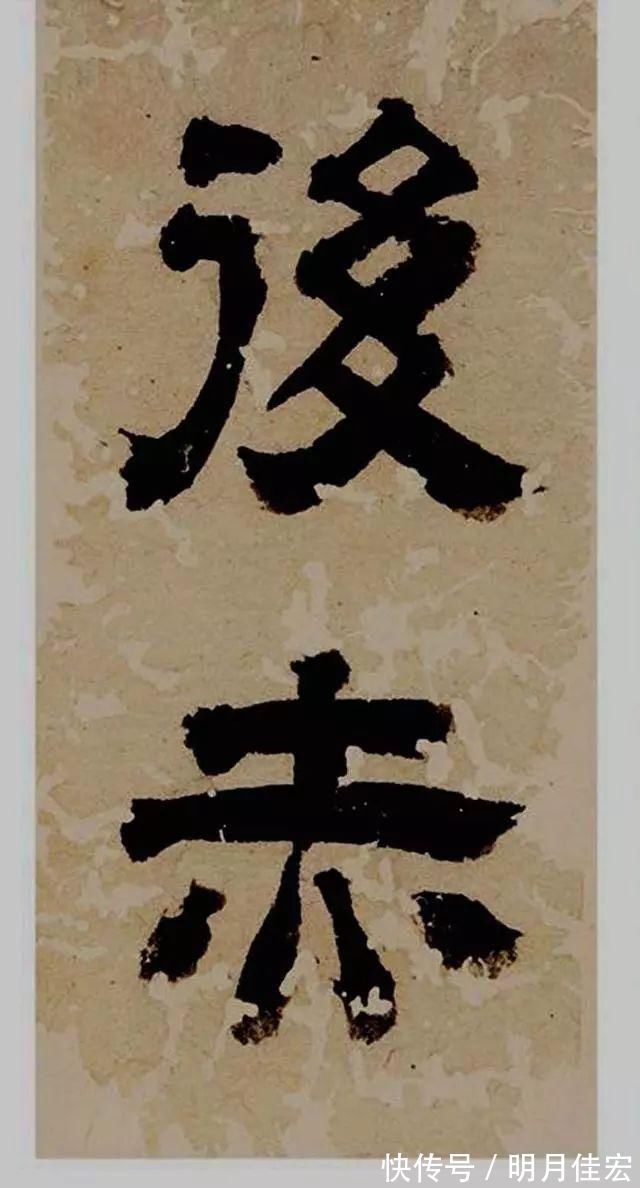 後
赤
快传号／明月佳宏